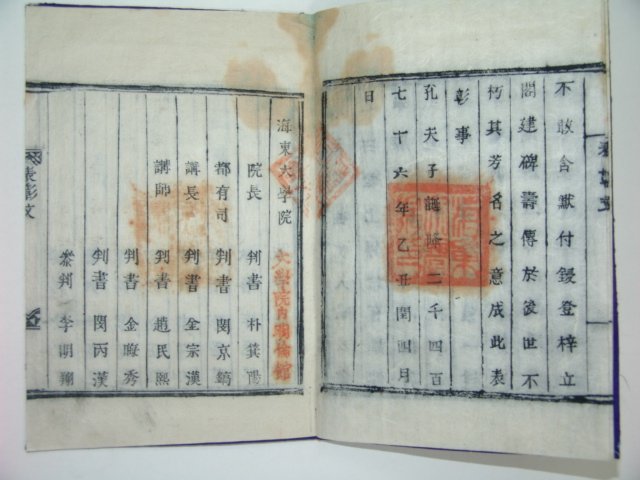 不敢含默付鋟登梓立
閣建碑壽傳於後世不
朽其芳名之意成此表
彰事
孔夫子誕降二千四百
七十六年乙丑閏四月
日
海東大學院
大學院內明倫館
院長 判書 朴箕陽
都有司 判書 閔京鎬
講長 判書 金宗漢
講師 判書 趙民熙
判書 金晩秀
判書 閔丙漢
參判 李明翔
表彰文